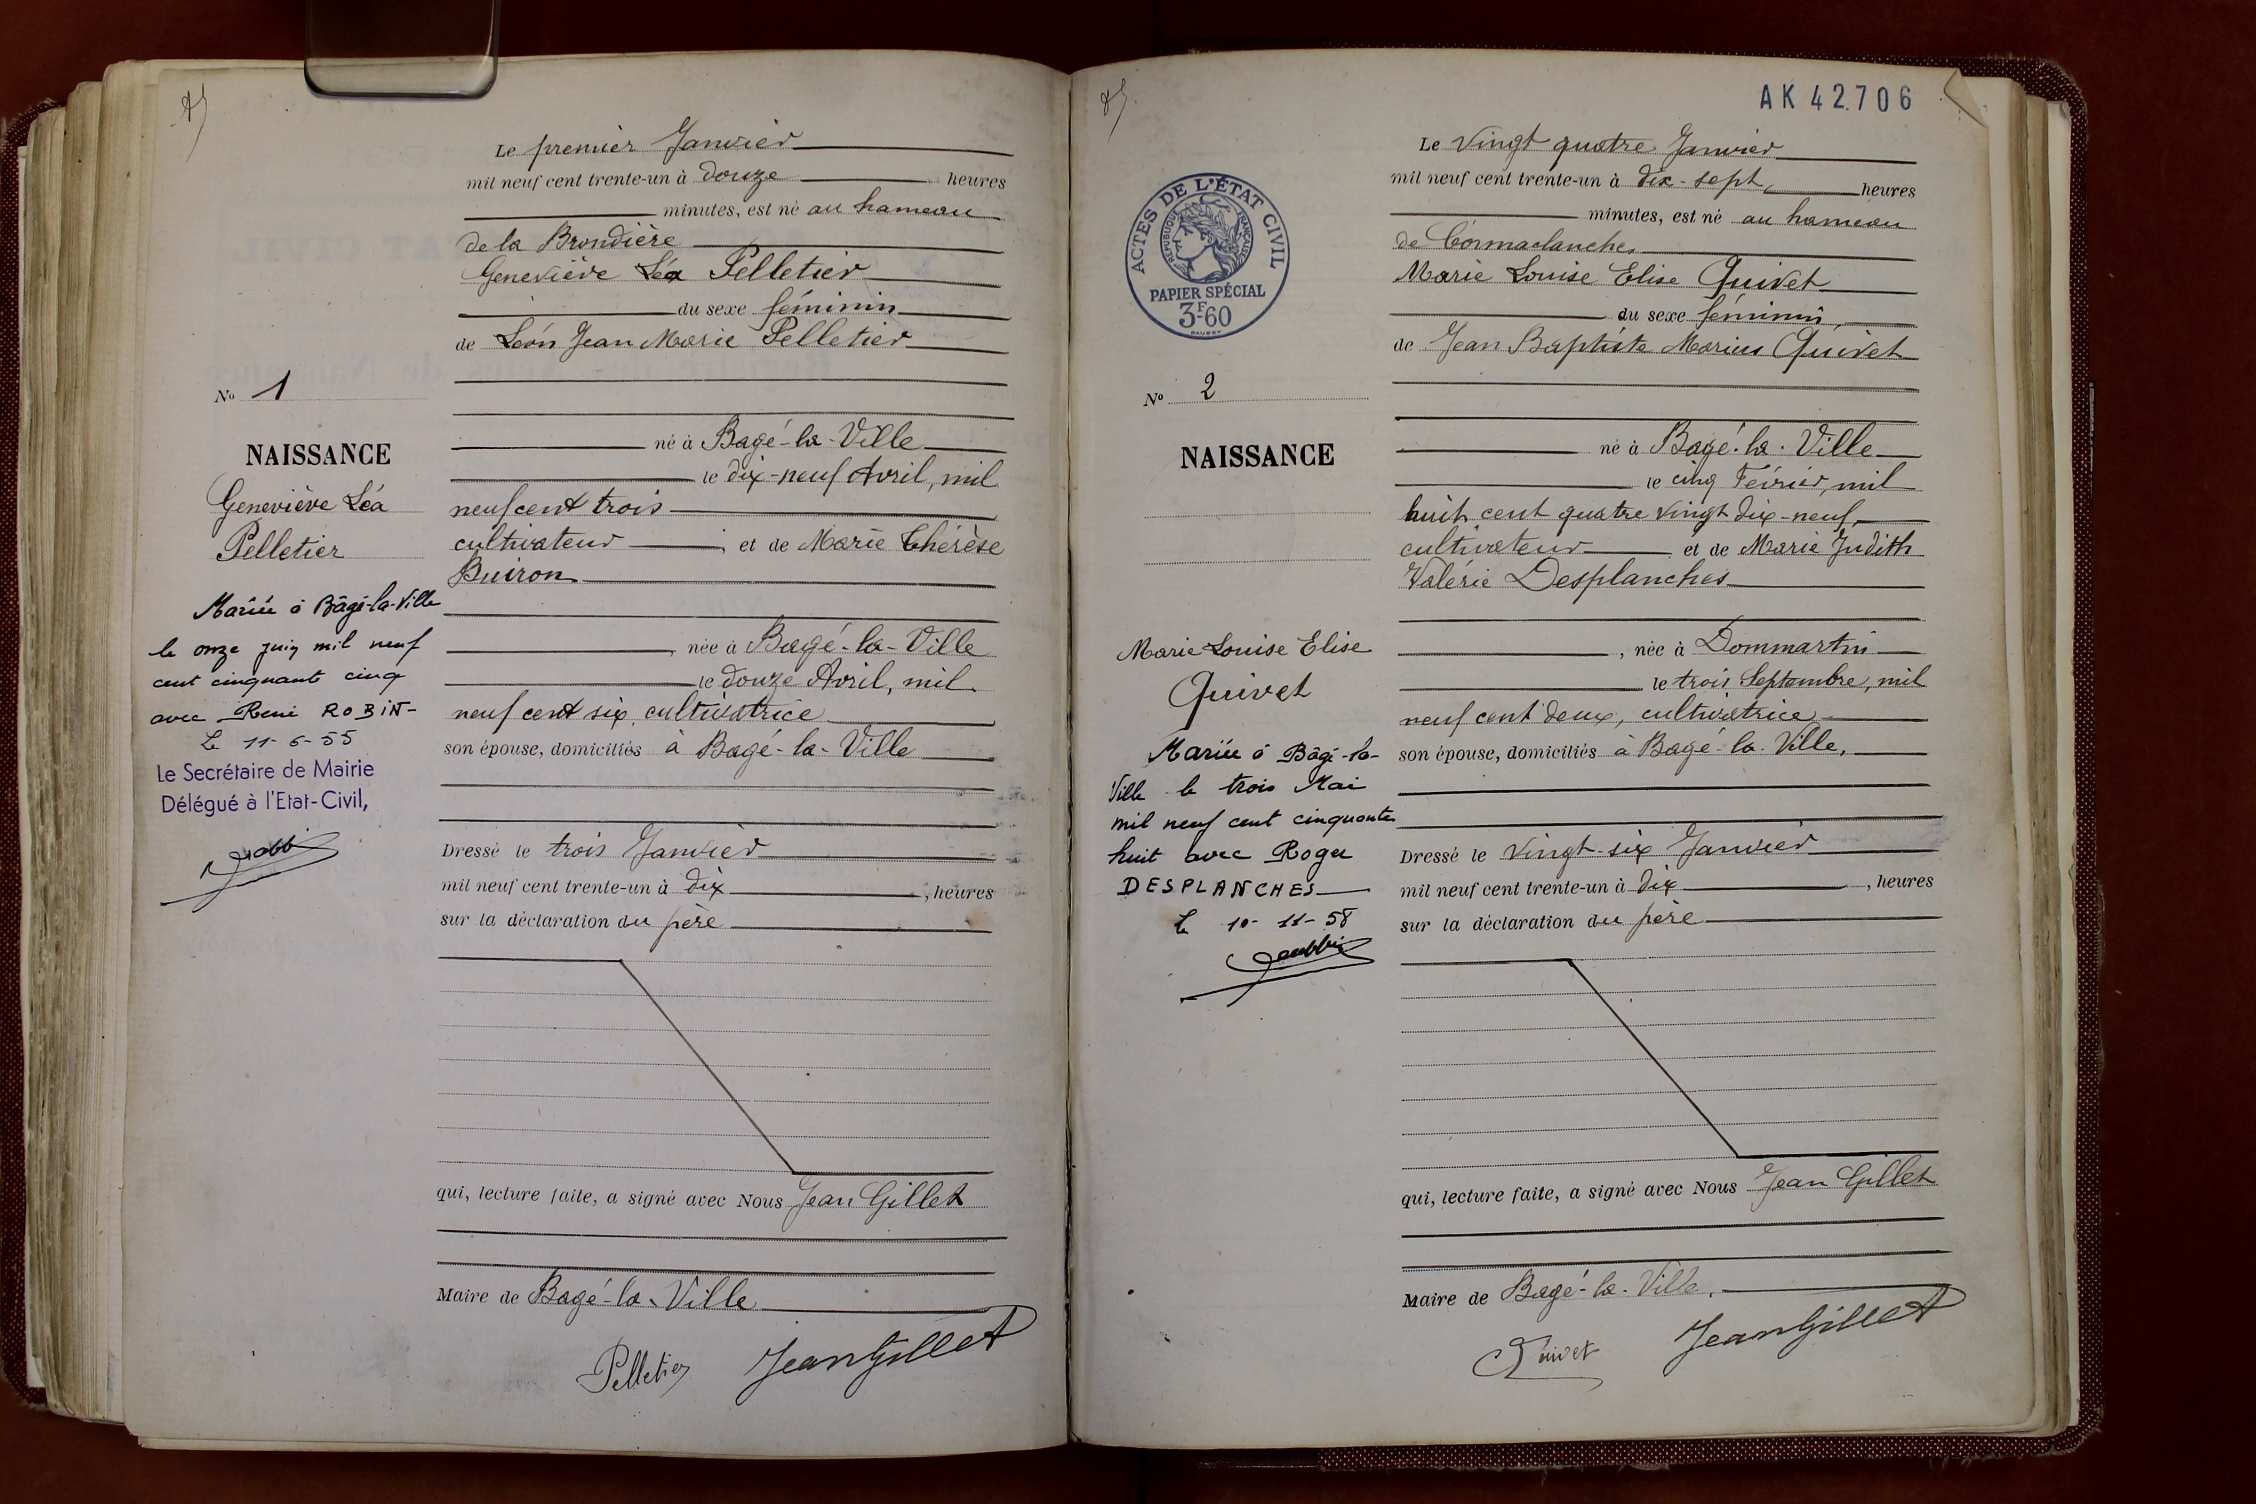 Le premier Janvier
mil neuf cent trente-un à douze heures
minutes, est né au hameau
de la Brondière
Geneviève Léa Pelletier
du sexe féminin
de Léon Jean Marie Pelletier
No 1
né à Bagé-la-Ville
NAISSANCE
le dix-neuf Avril, mil
Geneviève Léa
neuf cent trois
Pelletier
cultivateur, et de Marie Thérèse
Buiron
Mariée à Bâgé-la-Ville
le onze juin mil neuf
cent cinquante cinq
avec René ROBIN-
Le 11-6-55
Le Secrétaire de Mairie
Délégué à l'Etat-Civil,
née à Bagé-la-Ville
le douze Avril, mil
neuf cent six, cultivatrice
son épouse, domiciliés à Bagé-la-Ville
Dressé le trois Janvier
mil neuf cent trente-un à dix, heures
sur la déclaration du père
qui, lecture faite, a signé avec Nous Jean Gillet
Maire de Bagé-la-Ville
Pelletier Jean Gillet
AK 42.706
Le vingt quatre Janvier
mil neuf cent trente-un à dix-sept, heures
minutes, est né au hameau
de Cormaclanche,
Marie Louise Elise Quivet
du sexe féminin,
de Jean Baptiste Marius Quivet
ACTES DE L'ÉTAT CIVIL
RÉPUBLIQUE FRANÇAISE
PAPIER SPÉCIAL
3F60
No 2
NAISSANCE
né à Bagé-la-Ville
le cinq Février, mil
huit cent quatre vingt dix-neuf,
cultivateur et de Marie Judith
Valérie Desplanches
Marie Louise Elise
Quivet
, née à Dommartin
le trois Septembre, mil
neuf cent deux, cultivatrice
son épouse, domiciliés à Bagé-la-Ville,
Mariée à Bâgé-la-
Ville le trois Mai
mil neuf cent cinquante
huit avec Roger
DESPLANCHES
Le 10-11-58
Dressé le vingt-six Janvier
mil neuf cent trente-un à dix, heures
sur la déclaration du père
qui, lecture faite, a signé avec Nous Jean Gillet
Maire de Bagé-la-Ville,
Quivet Jean Gillet